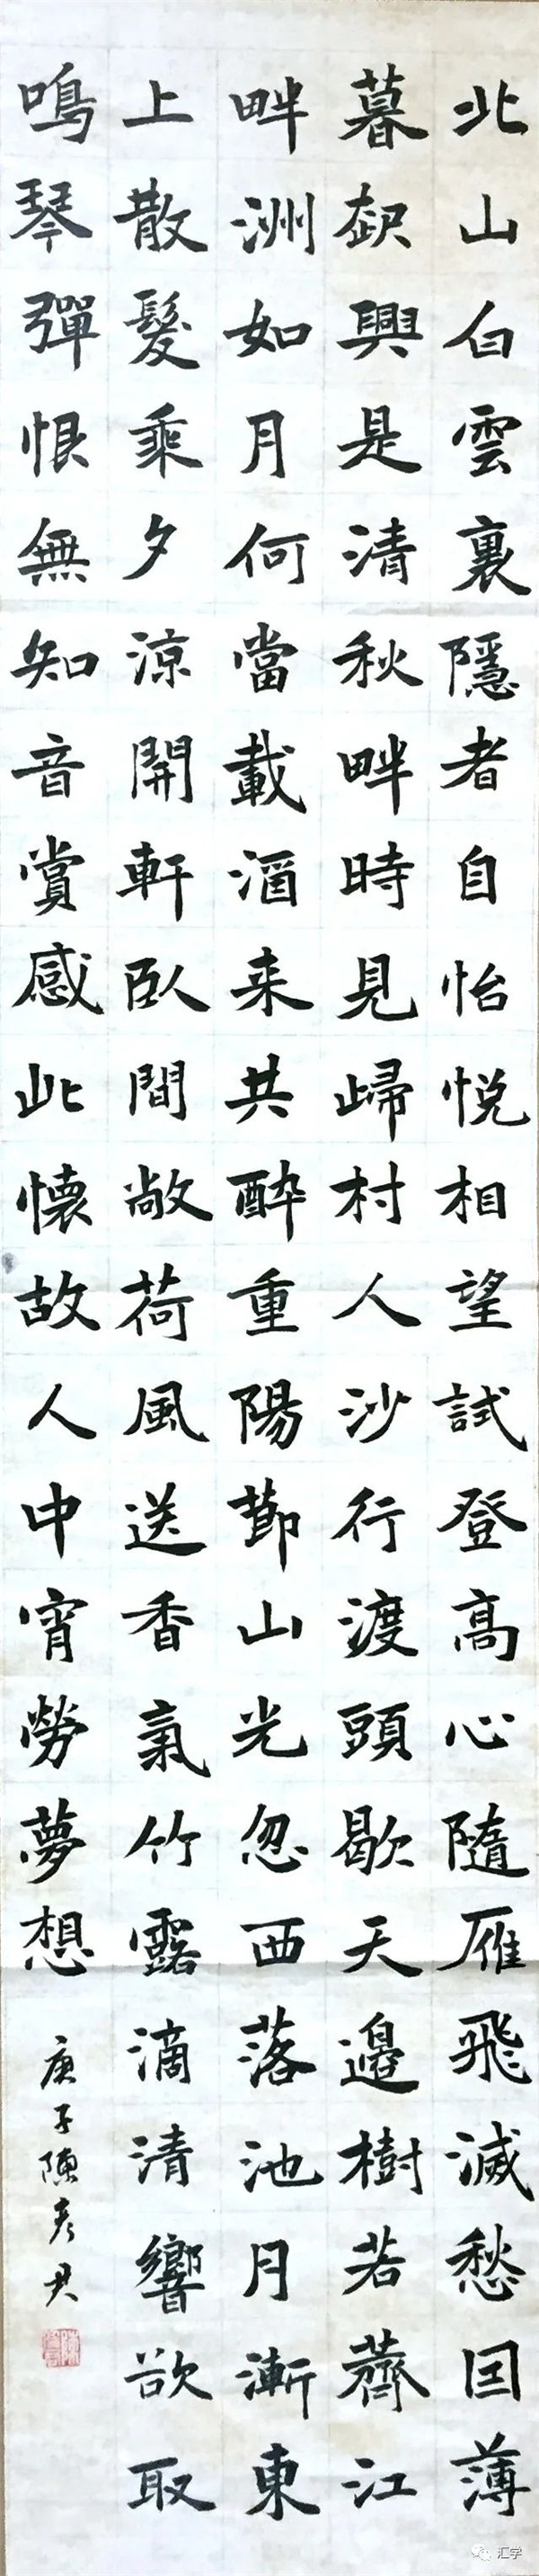 北山白雲裏隱者自怡悦相望試登高心隨雁飛滅愁囙薄
暮起興是清秋畔時見歸村人沙行渡頭歇天邊樹若薺江
畔洲如月何當載酒来共醉重陽節山光忽西落池月漸東
上散髮乘夕涼開軒臥間敞荷風送香氣竹露滴清響欲取
鳴琴彈恨無知音賞感此懷故人中宵勞夢想
庚子陳彦尹
汇学